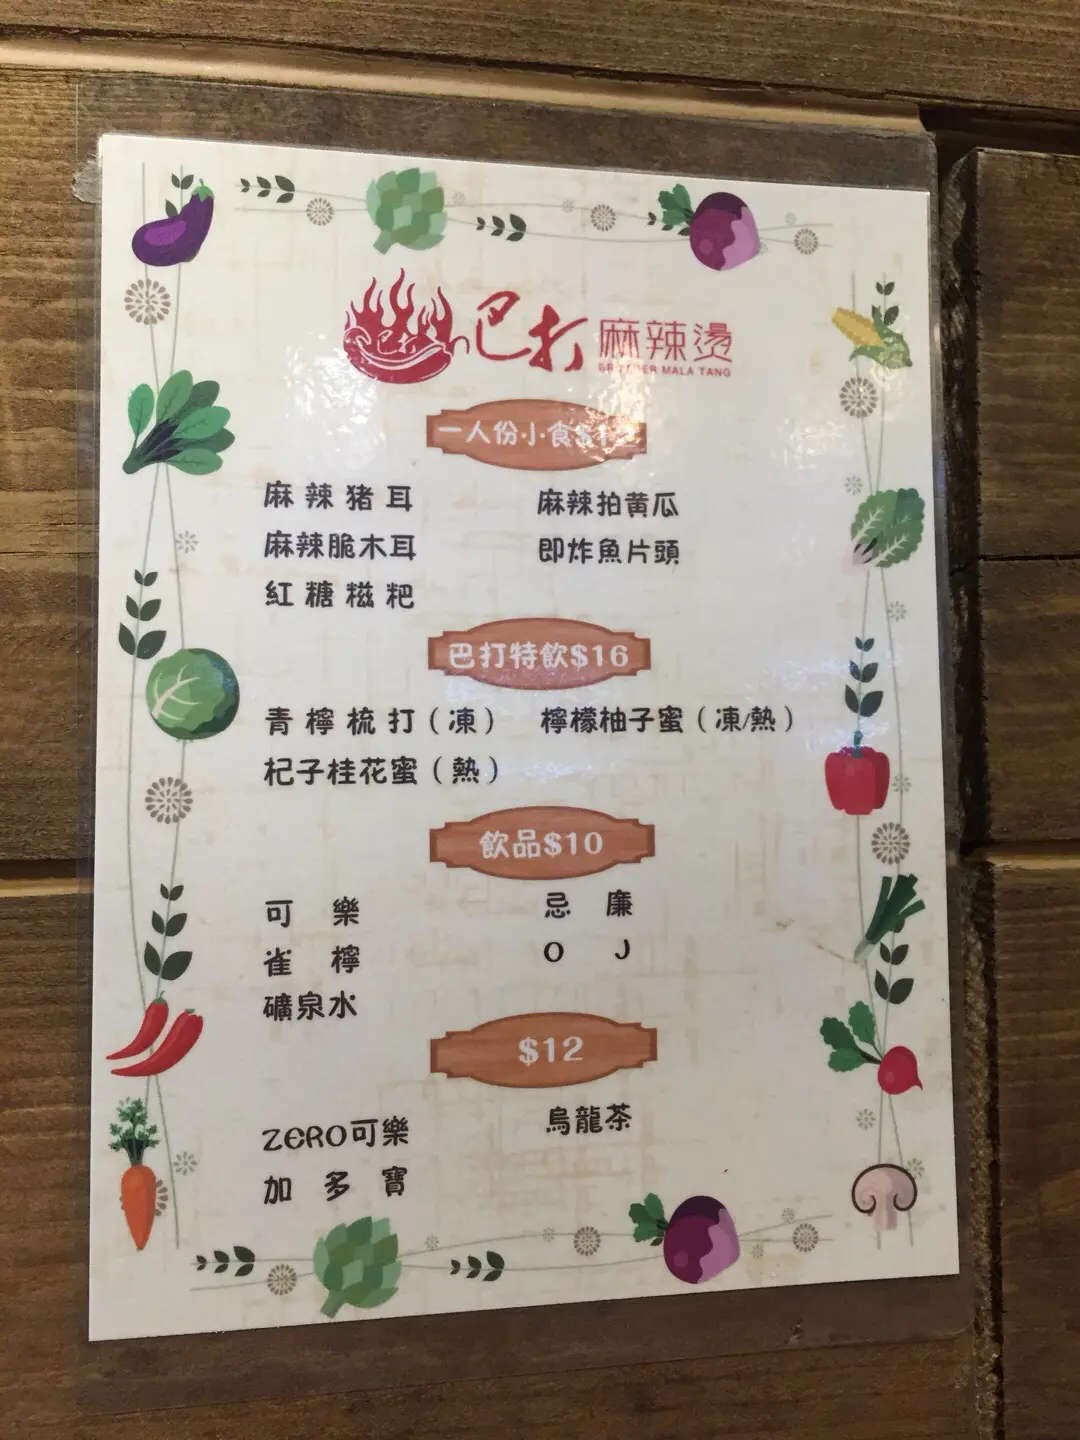 巴打 麻辣燙
BROTHER MALA TANG
一人份小食
麻辣猪耳 麻辣拍黄瓜
麻辣脆木耳 即炸魚片頭
紅糖糍粑
巴打特飲$16
青檸梳打（凍） 檸檬柚子蜜（凍/熱）
杞子桂花蜜（熱）
飲品$10
可樂 忌廉
雀檸 OJ
礦泉水
$12
ZERO可樂 烏龍茶
加多寶